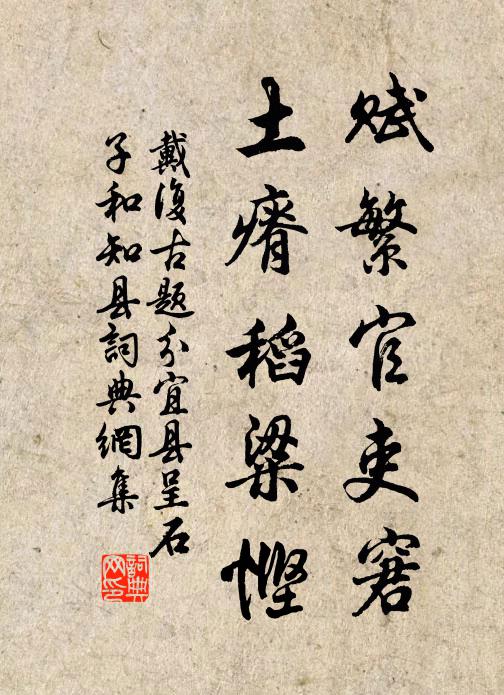 赋繁官吏窘
土瘠稻粱悭
戴復古题分宜县呈石
子和知县詞典網集
詞典网印